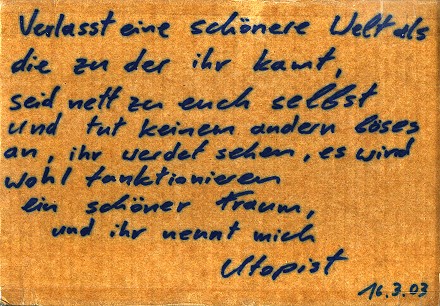 Verlasst eine schönere Welt als
die zu der ihr kamt,
seid nett zu euch selbst
und tut keinem andern böses
an, ihr werdet sehen, es wird
wohl funktionieren
ein schöner Traum,
und ihr nennt mich
Utopist
16.3.03